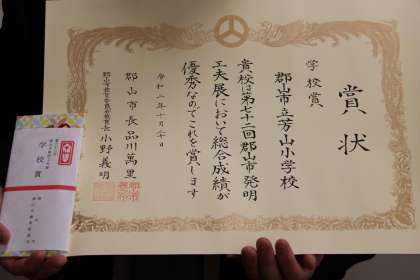 賞状
学校賞
郡山市立芳山小学校
貴校は第七十二回郡山市発明
工夫展において総合成績が
優秀なのでこれを賞します
令和二年十月二十日
郡山市長品川萬里
郡山市教育委員会教育長小野義明
学校賞